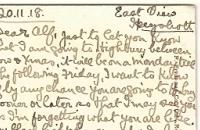 20.11.18.
East View
Heyshott
Dear Alf. Just to let you know
that I am going to Highbury between
now & Xmas, it will be on a Monday
the following Friday, I want to know
by any chance you are going to
sooner or later so that I may see you
I'm forgetting what you are like